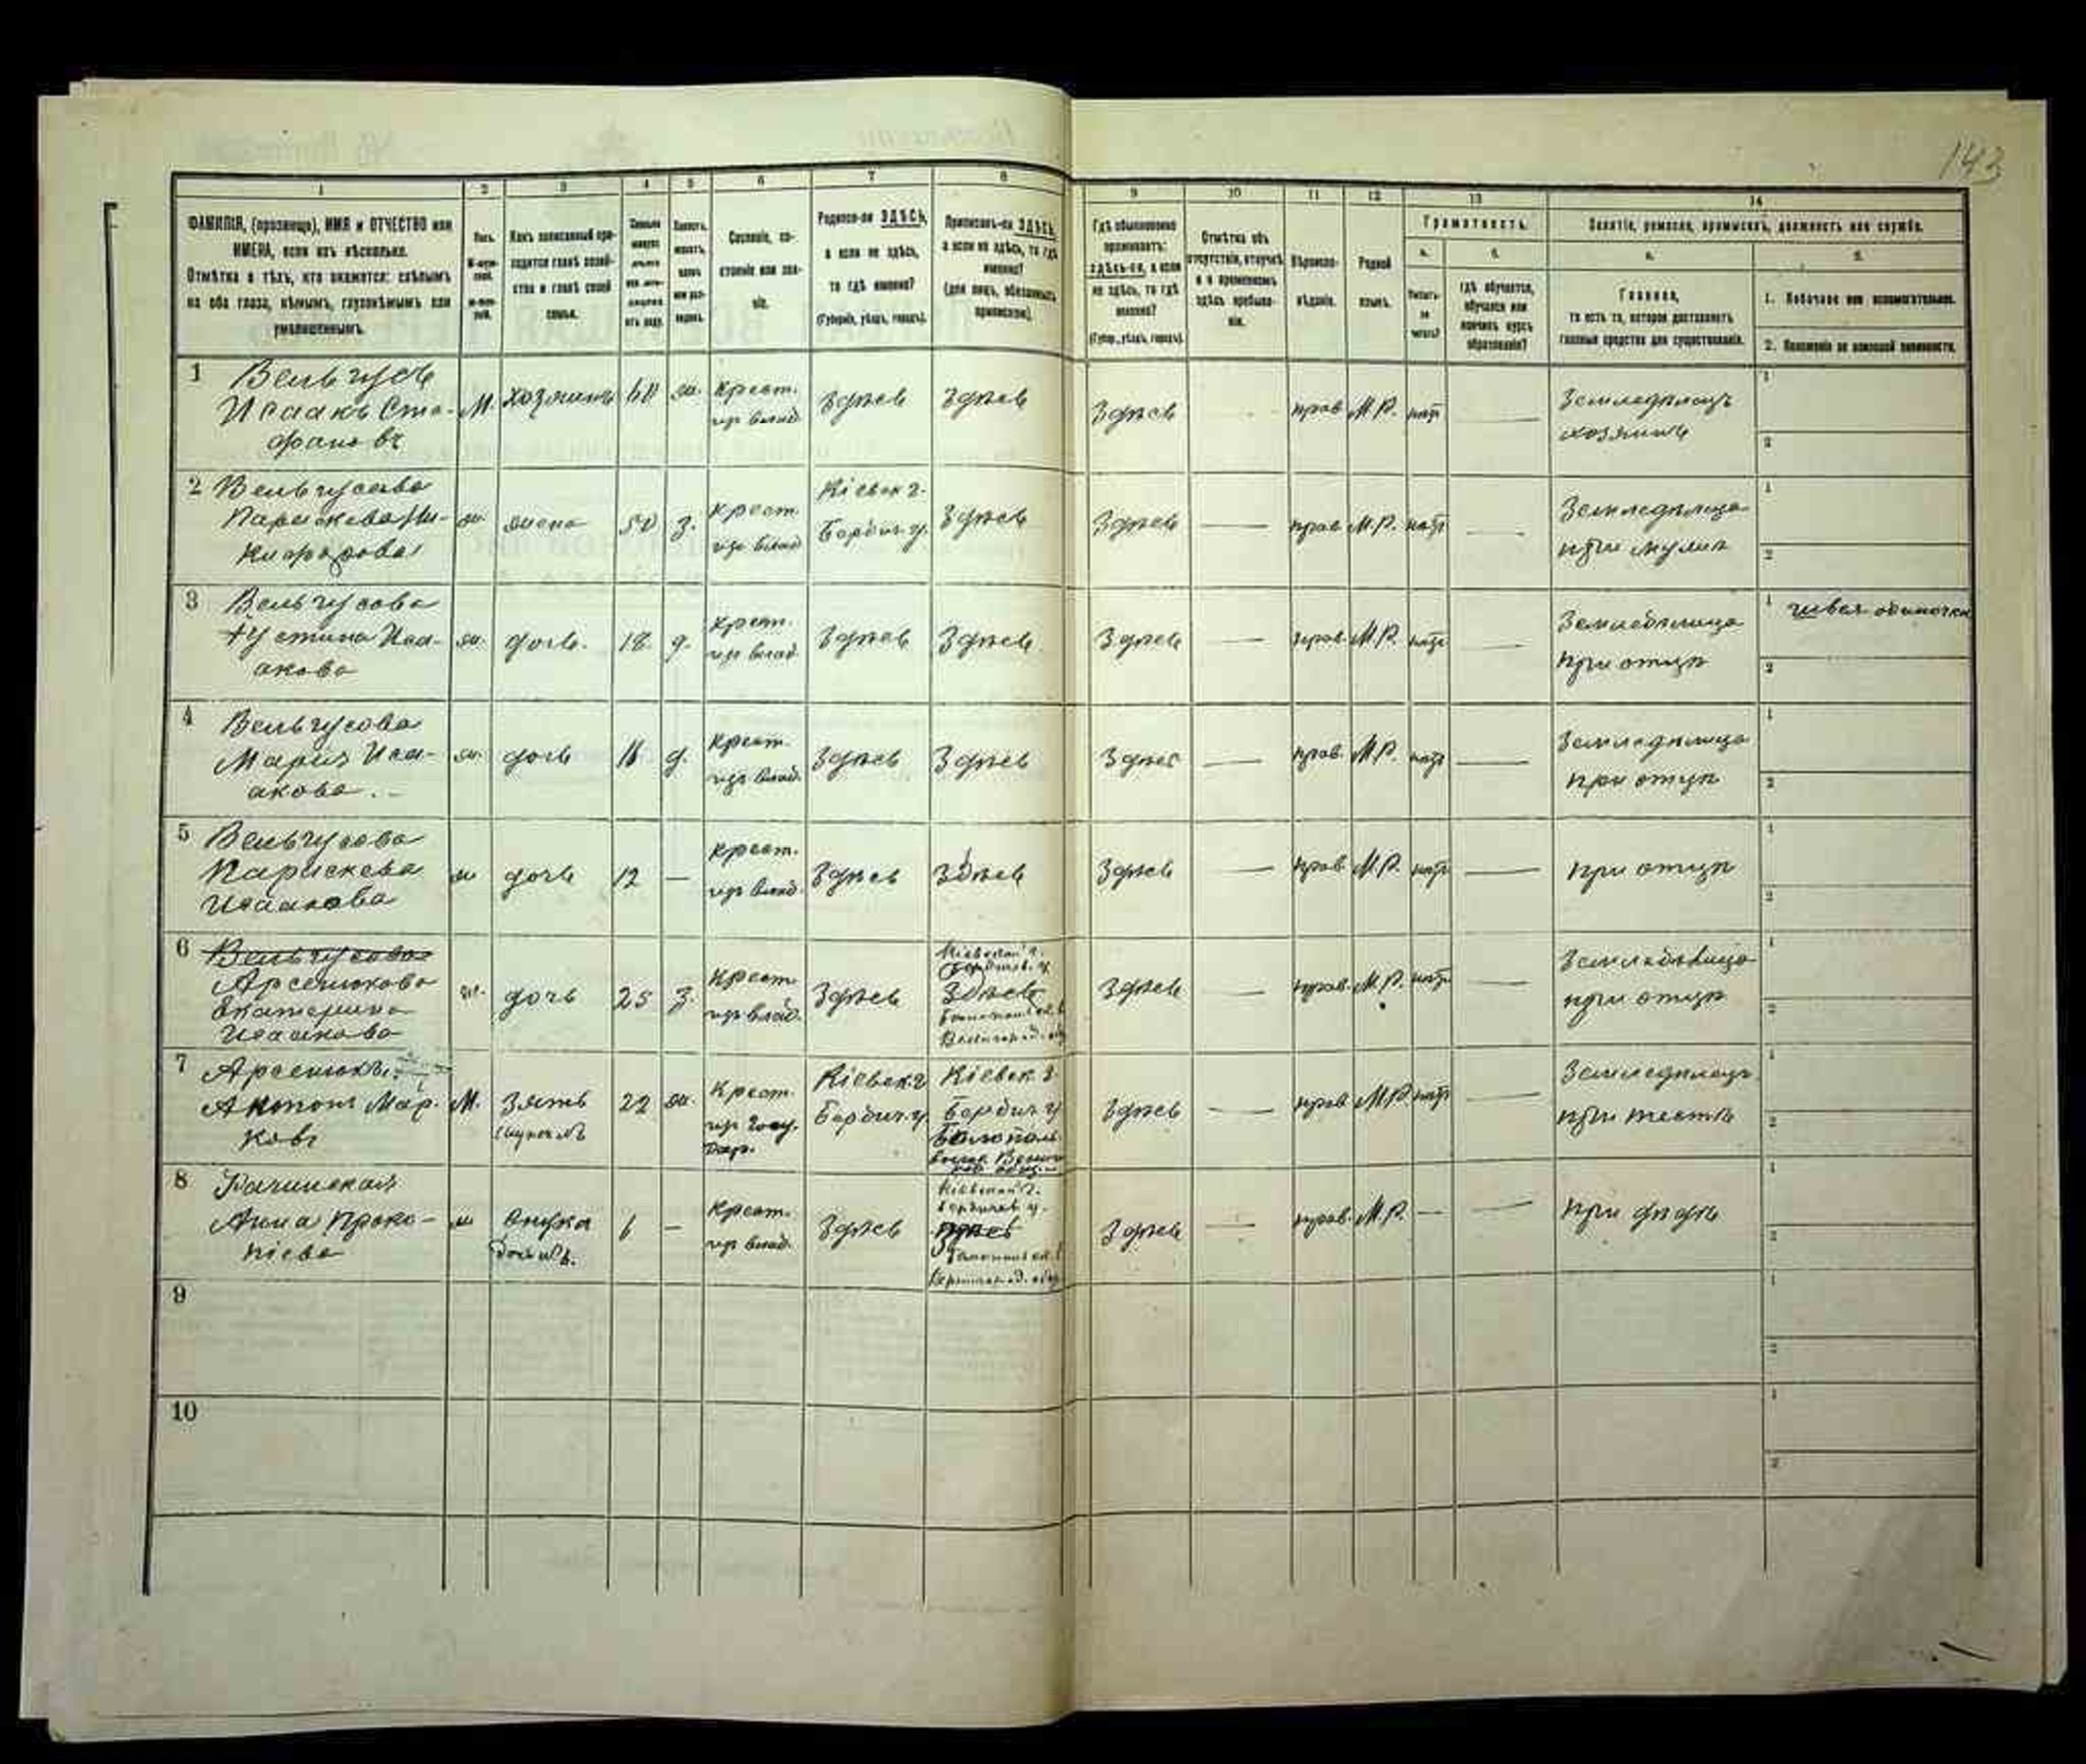 143
1 2 3 4 5 6 7 8 9 10 11 12 13 14
ФАМИЛІЯ, (прозвище), ИМЯ и ОТЧЕСТВО или
ИМЕНА, если ихъ нѣсколько.
Отмѣтка о тѣхъ, кто окажется: слѣпымъ
на оба глаза, нѣмымъ, глухонѣмымъ или
умалишеннымъ.
Какъ записанный при-
ходится главѣ хозяй-
ства и главѣ своей
семьи.
Сословіе, со-
стояніе или зва-
ніе.
Родился-ли ЗДѢСЬ,
а если не здѣсь,
то гдѣ именно?
(Губернія, уѣздъ, городъ).
Приписанъ-ли ЗДѢСЬ,
а если не здѣсь, то гдѣ
именно?
(для лицъ, обязанныхъ
припискою).
Гдѣ обыкновенно
проживаетъ:
здѣсь-ли, а если
не здѣсь, то гдѣ
именно?
(Губер., уѣздъ, городъ).
Отмѣтка объ
отсутствіи, отлучкѣ
и о временномъ
здѣсь пребыва-
ніи.
Вѣроиспо-
вѣданіе.
Родной
языкъ.
Грамотность.
а. б.
Умѣетъ-
ли
читать?
гдѣ обучается,
обучался или
кончилъ курсъ
образованія?
Занятіе, ремесло, промыселъ, должность или служба.
а. б.
Главное,
то есть то, которое доставляетъ
главныя средства для существованія.
1. Побочное или вспомогательное.
2. Положеніе по воинской повинности.
1 Вельгусъ
Исаакъ Сте-
фановъ
М. хозяинъ 60 ж. крест. изъ влад. Здѣсь Здѣсь Здѣсь прав. М.Р. нѣтъ
Земледѣлецъ
хозяинъ
2 Вельгусова
Параскева Ни-
кифорова
ж. жена 50 з. крест. изъ влад. Кіевск г. Бердич у. Здѣсь Здѣсь — прав М.Р. нѣтъ —
Земледѣлица
при мужѣ
3 Вельгусова
Устина Иса-
акова
ж. дочь. 18 д. крест. изъ влад. Здѣсь Здѣсь Здѣсь — прав. М.Р. нѣтъ —
Земледѣлица
при отцѣ
4 Вельгусова
Марія Иса-
акова.
ж. дочь 16 д. крест. изъ влад. Здѣсь Здѣсь Здѣсь — прав. М.Р. нѣтъ —
Земледѣлица
при отцѣ
5 Вельгусова
Параскева
Исаакова
ж дочь 12 — крест. изъ влад. Здѣсь Здѣсь Здѣсь — прав. М.Р. нѣтъ —
при отцѣ
6 Вельгусова
Арсенюкова
Екатерина
Исаакова
ж. дочь 25 з. Крест. изъ влад. Здѣсь Кіевской г. Бердичев. у. Здѣсь Здѣсь — прав. М.Р. нѣтъ —
Земледѣлица
при отцѣ
7 Арсенюкъ
Антонъ Мар-
ковъ
М. Зять 22 ж. Крест. изъ Госу-
дар. Кіевск. г Бердич. у. Кіевск. г. Бердич у Здѣсь — прав М.Р. нѣтъ —
Земледѣлецъ
при тестѣ
8 Качинская
Анна Проко-
піева
ж Внучка 6 — Крест. изъ влад. Здѣсь Кіевской г. Бердичев у. Здѣсь Здѣсь — прав. М.Р. — —
при дѣдѣ
9
10